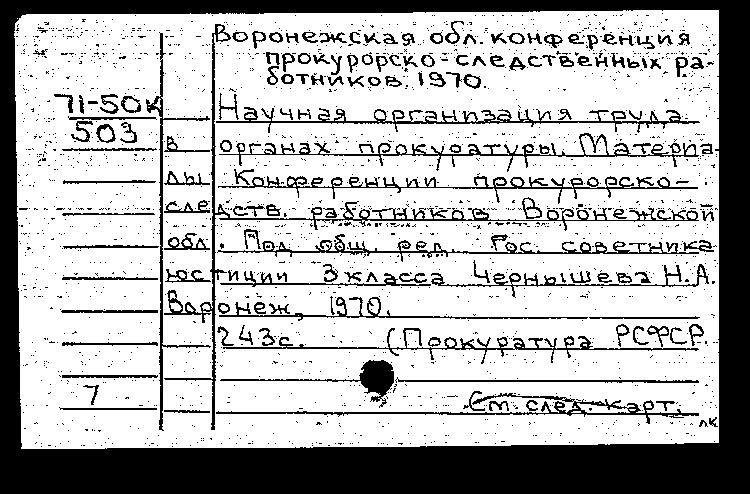 Воронежская обл. конференция
прокурорско-следственных ра-
ботников. 1970.
71-50к
503
Научная организация труда
в органах прокуратуры. Материа-
лы Конференции прокурорско-
следств. работников Воронежской
обл. Под общ. ред. Гос. советника
юстиции 3 класса Чернышева Н.А.
Воронеж, 1970.
243с. (Прокуратура РСФСР.
7
См. след. карт.
лк